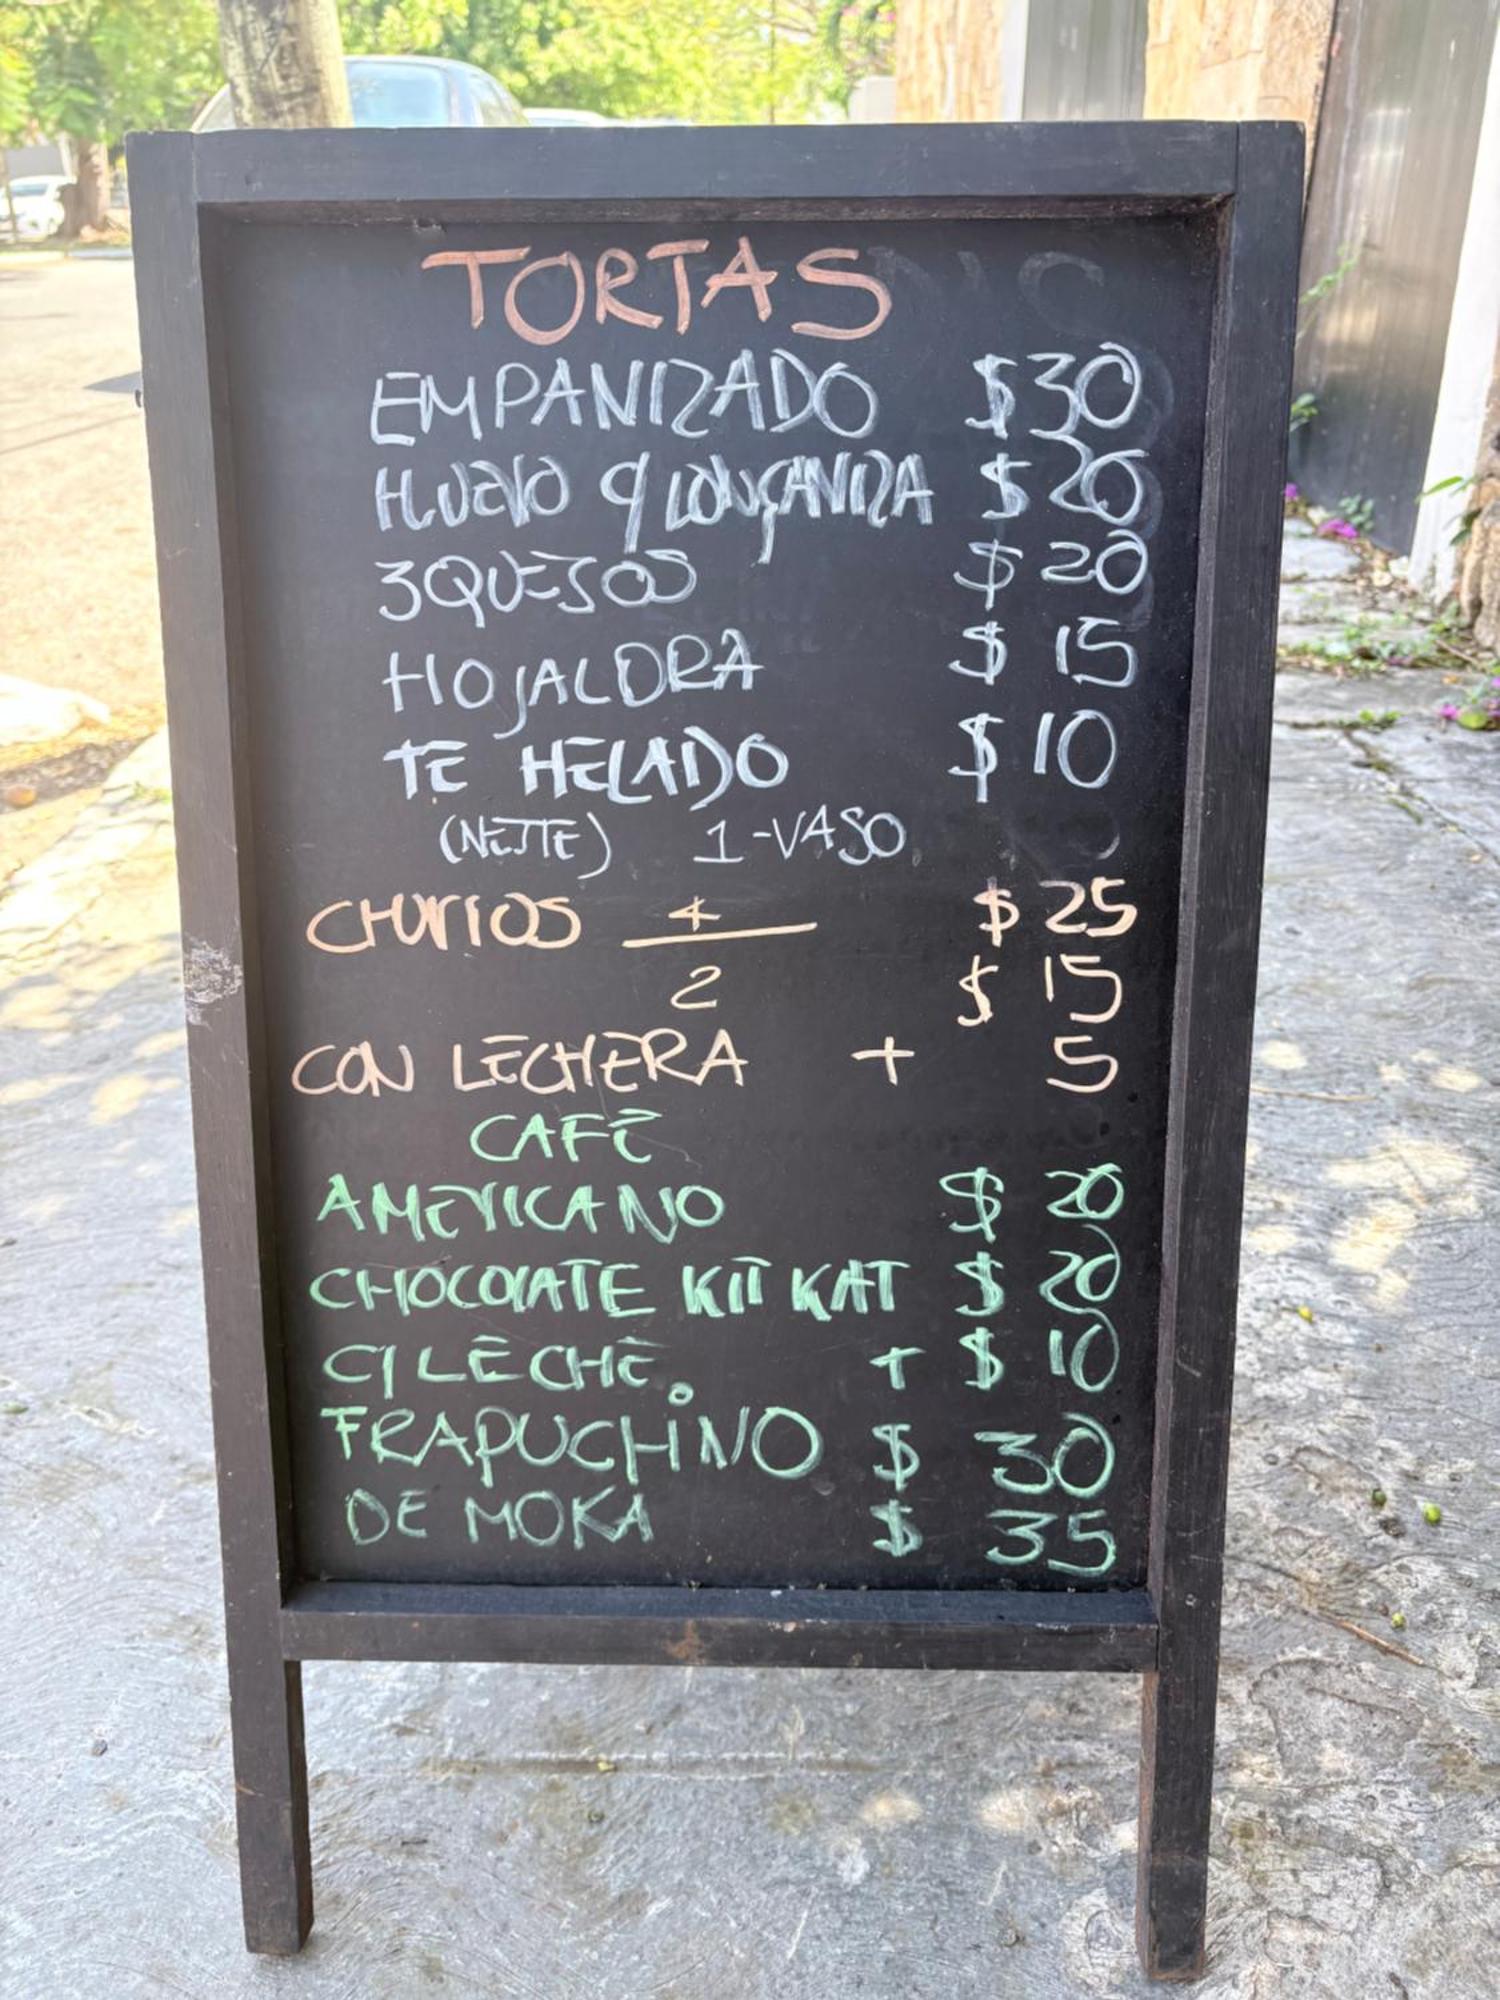 TORTAS
EMPANIZADO $30
HUEVO C/LONGANIZA $20
3QUESOS $20
HOJALDRA $15
TE HELADO $10
(NESTE) 1-VASO
CHURROS 4 $25
2 $15
CON LECHERA + 5
CAFE
AMERICANO $20
CHOCOLATE KIT KAT $20
C/LECHE. + $10
FRAPUCHINO $30
DE MOKA $35